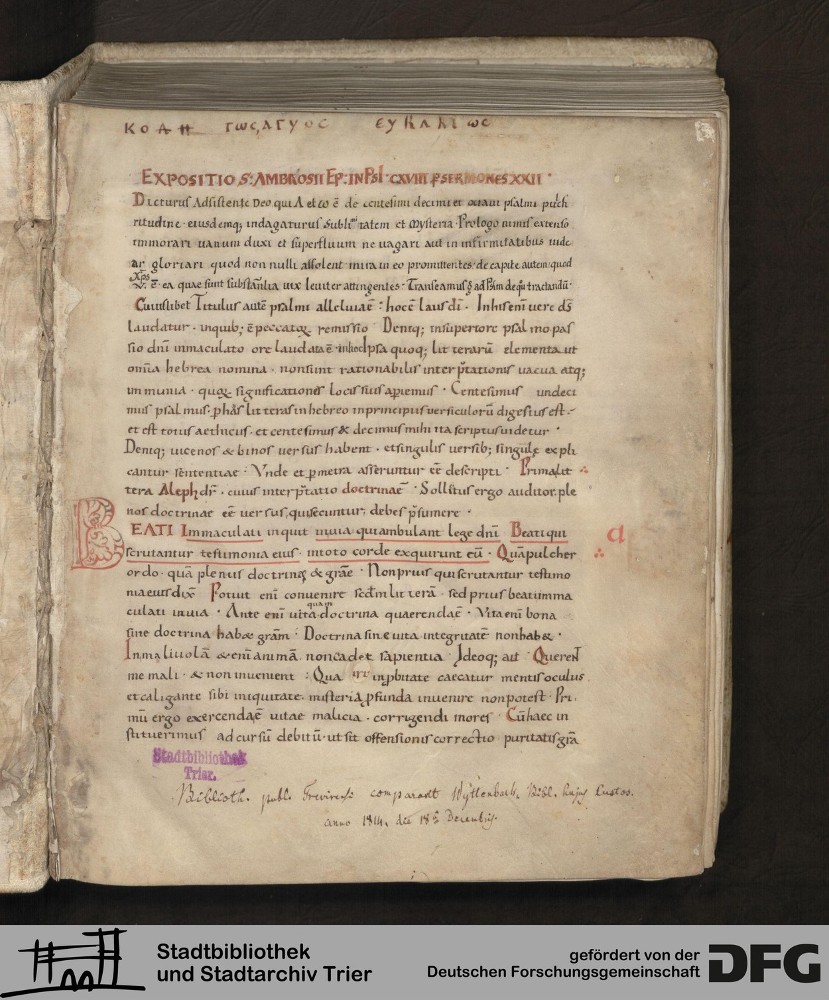 ΚΟΑΗ ΓωC,ΑΓΥΟC ЄΥΚΛΚΙωC
EXPOSITIO S: AMBROSII EP: IN PSL CXVIII P SERMONES XXII
Dicturus Adsistente deo qui A et ω ē de centesimi decimi et octavi psalmi pulch
ritudine · eiusdemq; indagaturus sublimitatem et mysteria · Prologo nimis extenso
immorari uanum duxi et superfluum ne uagari aut in infirmitatibus uide
ar gloriari quod non nulli assolent mira in eo promittentes · de capite autem quod
xp̄s
ē ea quae sunt substantia uix leuiter attingentes · Transeamus ad psalm de quo tractandū ·
Cuiuslibet Titulus autē psalmi alleluia ē : hoc ē laus dī · In his enī uere ds̄
laudatur · in quib; ē peccatoꝝ remissio Deniq; in superiore psalmo pas
sio dnī inmaculato ore laudata ē · in hoc Ipsa quoq; litterarū elementa ut
omīa hebrea nomina · non sunt rationabilis interp̄tationis uacua atq;
inmunia · quoꝝ significationes locis suis apiemus · Centesimus undeci
mus psalmus · p has litteras in hebreo in principiis uersiculorū digestus est ·
et est totus aethicus · et centesimus & decimus mihi ita scriptus uidetur ·
Deniq; uicenos & binos uersus habent · et singulis uersib; singulę expli
cantur sententiae · Vnde et p metra asseruntur eē descripti · Prima lit
tera Aleph dr̄ · cuius interp̄tatio doctrina ē · Sollitus ergo auditor ple
nos doctrinae eē uersus, qui secuntur, debes p̄sumere ·
BEATI Inmaculati inquit inuia qui ambulant lege dnī Beati qui
scrutantur testimonia eius · in toto corde exquirunt eū · Quā pulcher
a
ordo · quā plenus doctrinę & grāe · Non prius qui scrutantur testimo
nia eius dix̄ Potuit enī conuenire scdm litterā · sed prius beati imma
quam
culati in uia · Ante enī uita doctrina quaerenda ē · Vita enī bona
sine doctrina habet grām · Doctrina sine uita integritatē non habet ·
In maliuolā & enī animā non cadet sapientia · Ideoq; ait Querent
me mali · & non inuenient : Qua inprobitate caecatur mentis oculus
et caligante sibi iniquitate · misteria pfunda inuenire non potest · Pri
mū ergo exercenda ē uitae malicia · corrigendi mores · Cū haec in
stituerimus ad cursū debitū · ut sit offensionis correctio puritatis grā
Stadtbibliothek
Trier.
Biblioth. publ. Trevirensi comparavit Wyttenbach, Bibl. hujus Custos.
anno 1814. die 18ª Decembris.
Stadtbibliothek
und Stadtarchiv Trier
gefördert von der
Deutschen Forschungsgemeinschaft
DFG